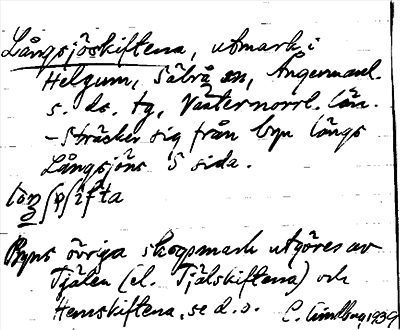 Långsjöskiftena, utmark i
Helgum, Sålrå sn, Ångermanl.
s. ds. tg, Västernorrl. län.
- Sträcker sig från byn längs
Långsjöns S sida.
Byns övriga skogsmark utgöres av
Tjälen (el. Tjälskiftena) och
Hemskiftena, se d.o. C. Lindberg, 1939